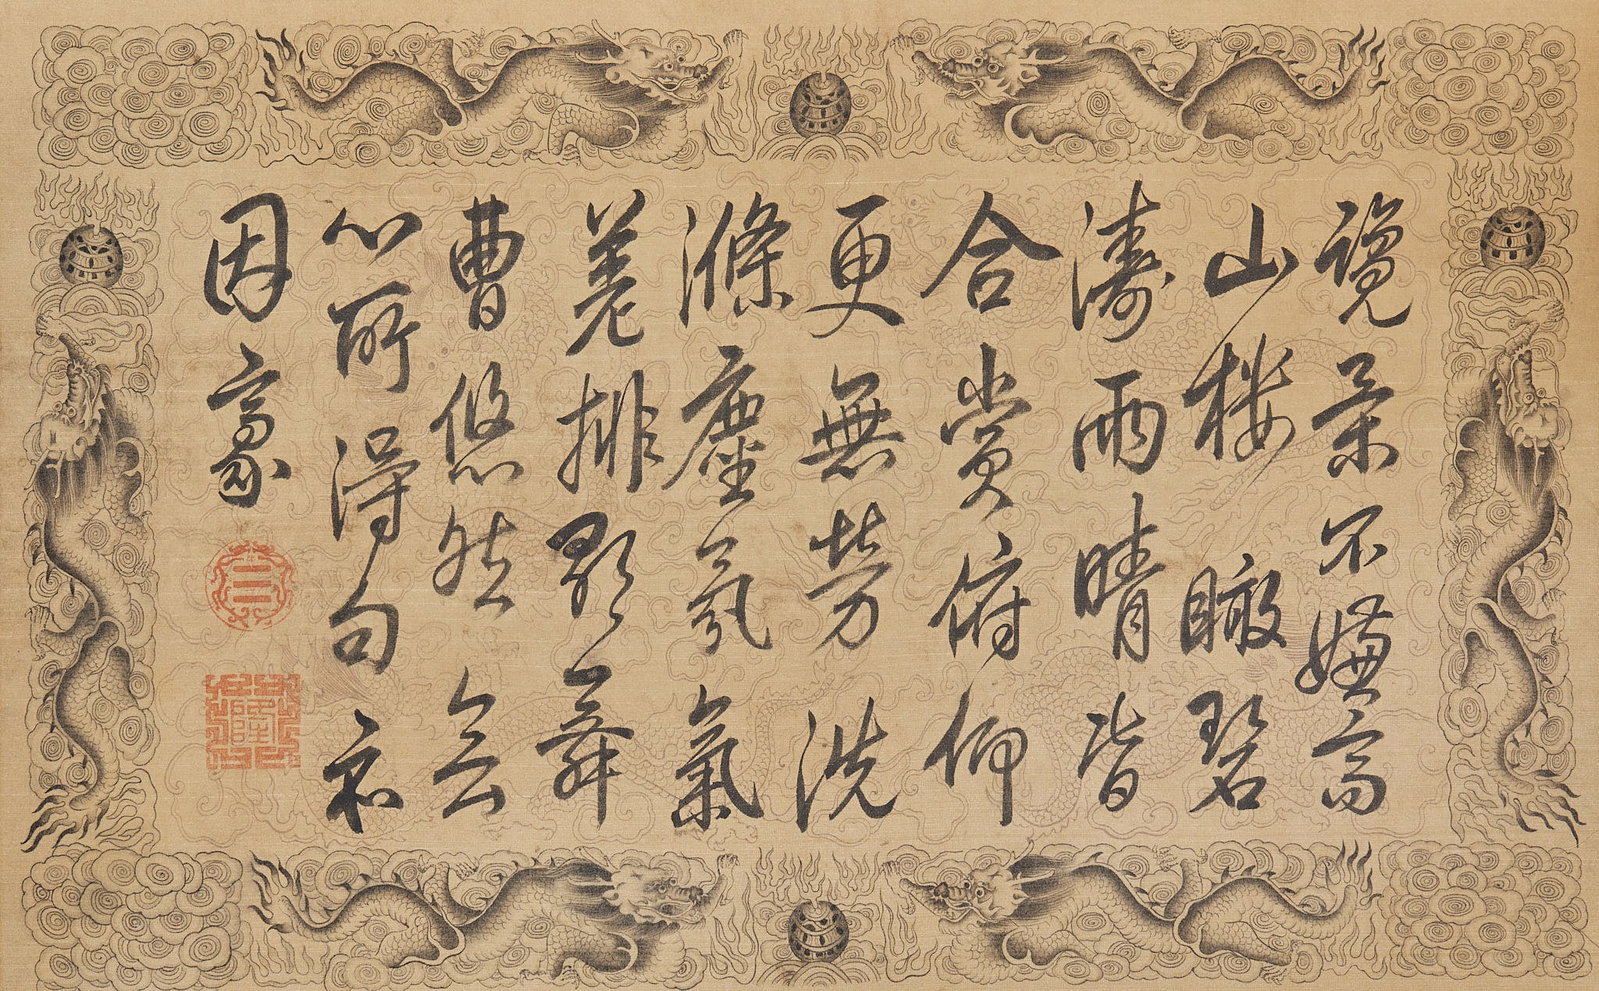 覽景不嫌高
山樓瞰碧
濤雨晴皆
合賞俯仰
更無勞洗
滌塵氛氣
排歌舞
曹悠然會
心所得句亦
因豪